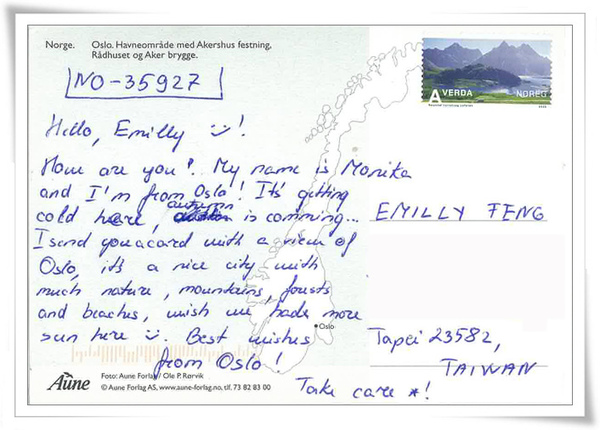 Norge. Oslo. Havneområde med Akershus festning,
Rådhuset og Aker brygge.
NO-35927
A VERDA NOREG
Hello, Emilly !
How are you! My name is Monika
and I'm from Oslo! It's getting
cold here, autumn is comming...
I send you a card with a view of
Oslo, it's a nice city with
much nature, mountains, forests
and beaches, wish we hade more
sun here . Best wishes
from Oslo!
Take care *!
EMILLY FENG
Tapei 23582,
TAIWAN
Oslo
Aune
Foto: Aune Forlag / Ole P. Rørvik
© Aune Forlag AS, www.aune-forlag.no, tlf. 73 82 83 00